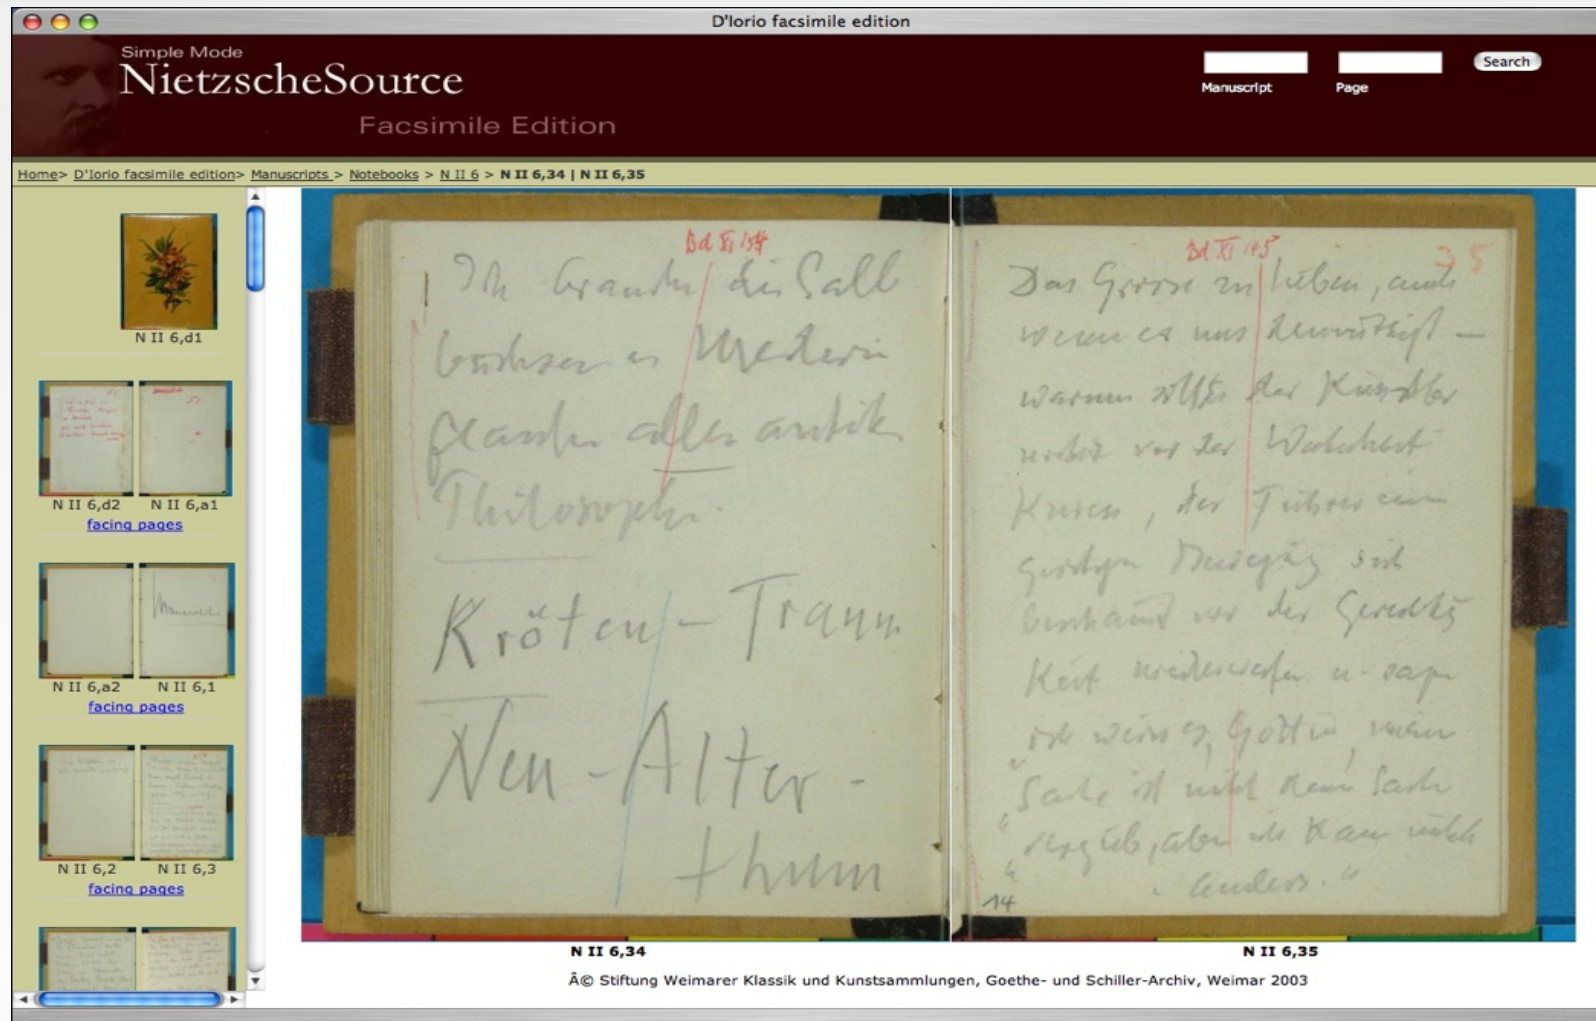 D'Iorio facsimile edition
Simple Mode
NietzscheSource
Facsimile Edition
Search
Manuscript Page
Home> D'Iorio facsimile edition> Manuscripts > Notebooks > N II 6 > N II 6,34 | N II 6,35
N II 6,d1
N II 6,d2 N II 6,a1
facing pages
N II 6,a2 N II 6,1
facing pages
N II 6,2 N II 6,3
facing pages
Bd XI
die Gall
Medicin
aller antiken
Philosophen.
Kröten-Traum
Neu-Alter-
thum
Bd XI
35
Das Grosse zu lieben, auch
wenn es uns demüthigt —
warum sollte der Künstler
nicht vor der Wahrheit
Knieen, der Führer einer
geistigen Bewegung sich
beschämt vor der Gerechtig
keit niederwerfen u. sagen
"ich weiss es, Göttin, meine
"Sache ist nicht deine Sache
"vergieb, aber ich kann nicht
" anders."
14
N II 6,34
N II 6,35
Â© Stiftung Weimarer Klassik und Kunstsammlungen, Goethe- und Schiller-Archiv, Weimar 2003